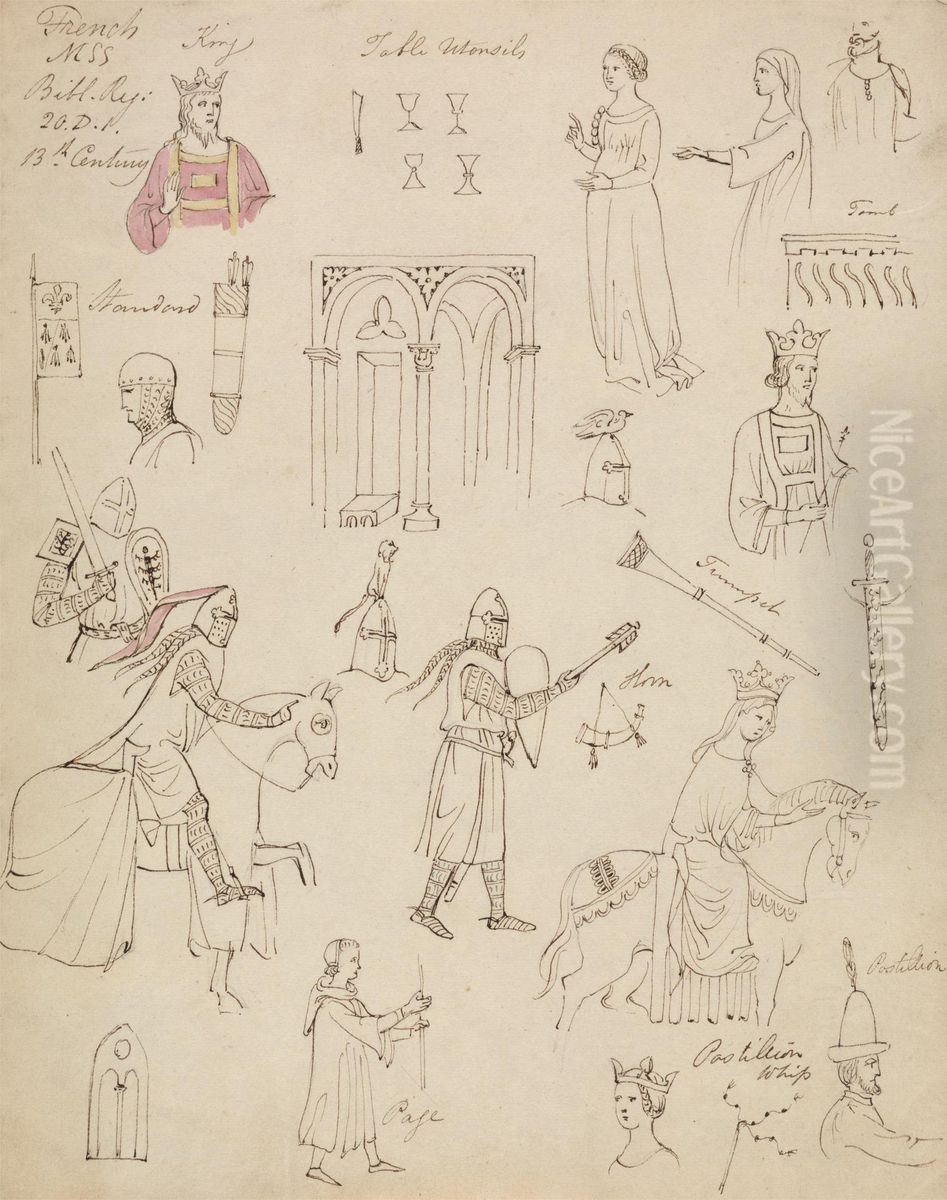 French
MSS
Bibl. Reg:
20. D. 1.
13th Century
King
Table Utensils
Tomb
Standard
Trumpet
Horn
Postillion
Postillion
Whip
Page
NiceArtGallery.com